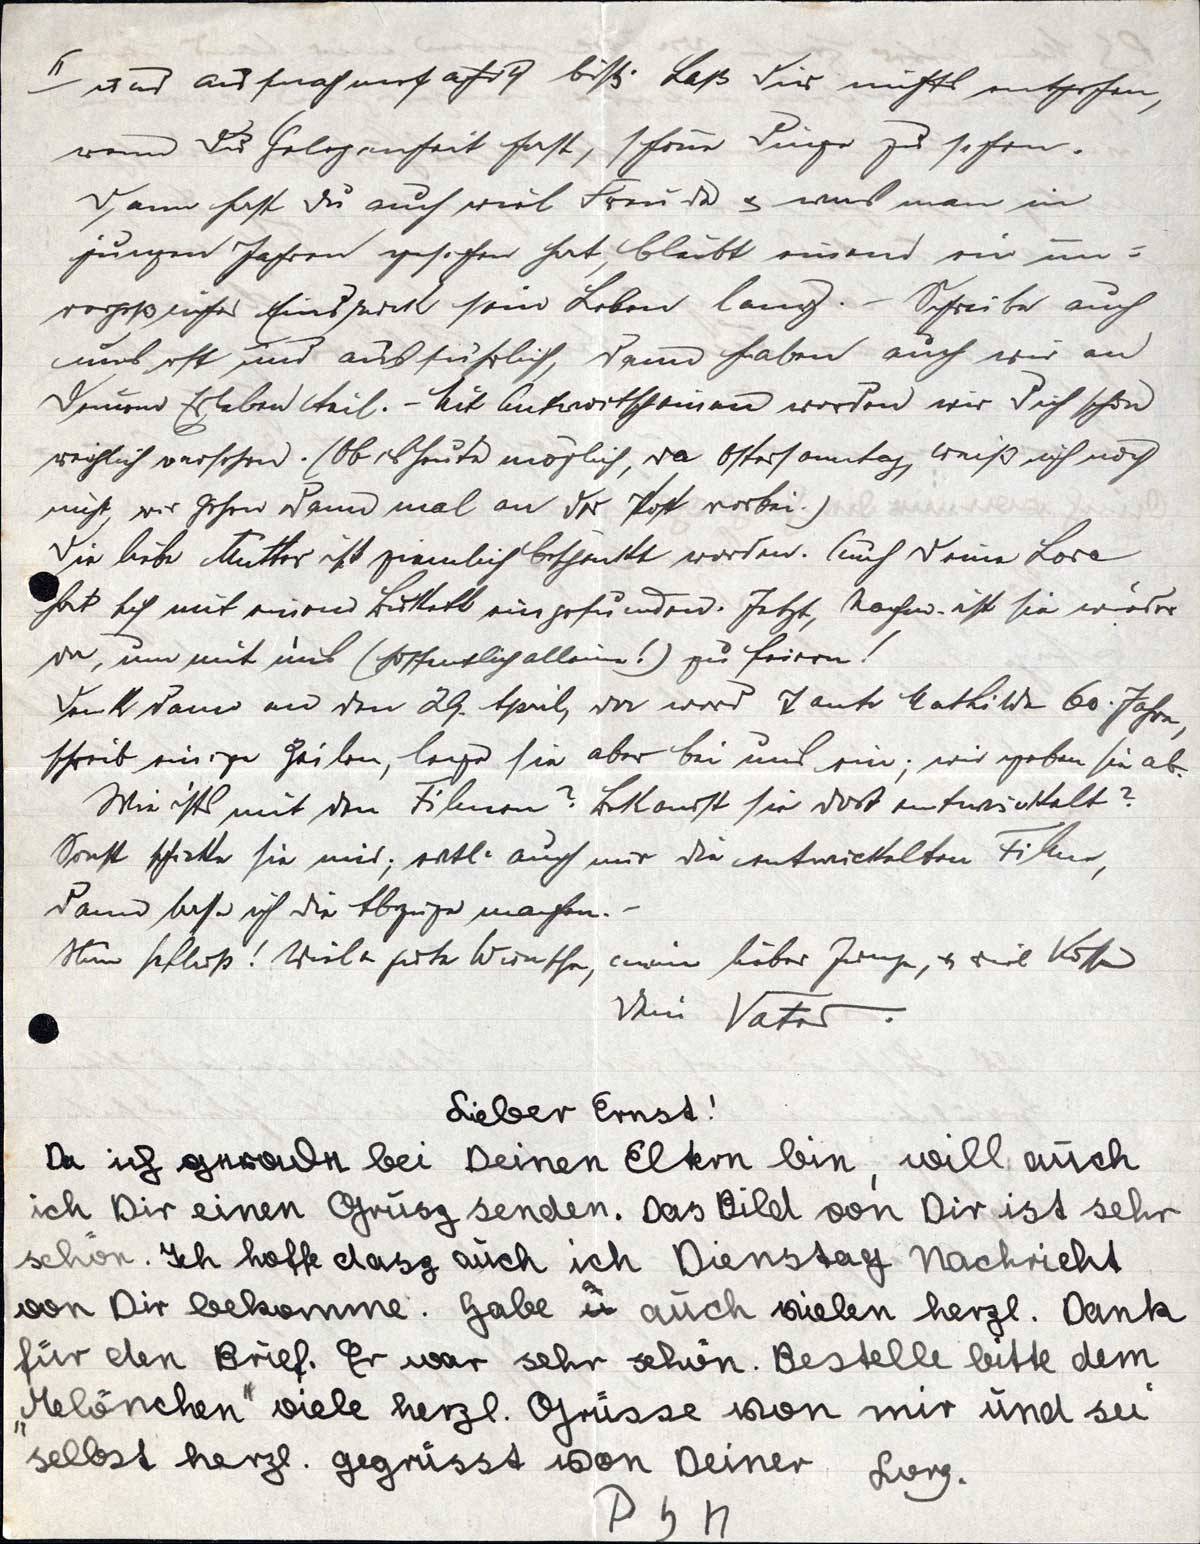 II
und aufnahmefähig bist. Laß Dir nichts entgehen,
wenn Du Gelegenheit hast, schöne Dinge zu sehen.
Dann hast Du auch viel Freude & was man in
jungen Jahren gesehen hat, bleibt einem ein un=
vergeßlicher Eindruck sein Leben lang. – Schreibe auch
uns oft und ausführlich, dann haben auch wir an
Deinem Erleben teil. – Mit Antwortscheinen werden wir Dich schon
reichlich versehen. (Ob es heute möglich, da Ostersonntag, weiß ich noch
nicht, wir gehen dann mal an der Post vorbei.)
Die liebe Mutter ist ziemlich beschenkt worden. Auch Deine Lore
hat sich mit einem Bukett eingefunden. Jetzt, Nachm. ist sie wieder
da, um mit uns (hoffentlich allein!) zu feiern!
Denk dann an den 29. April, da wird Tante Mathilde 60 Jahre,
schreib einige Zeilen, lege sie aber bei uns ein; wir geben sie ab.
Wie ists mit den Filmen? Bekommst sie dort entwickelt?
Sonst schicke sie mir; evtl. auch nur die entwickelten Filme,
dann lasse ich die Abzüge machen. –
Nun Schluß! Viele gute Wünsche, mein lieber Junge, & viel Küsse
Dein Vater.
Lieber Ernst!
Da ich gerade bei Deinen Eltern bin, will auch
ich Dir einen Grusz senden. Das Bild von Dir ist sehr
schön. Ich hoffe dasz auch ich Dienstag Nachricht
von Dir bekomme. Habe auch vielen herzl. Dank
für den Brief. Er war sehr schön. Bestelle bitte dem
„Melönchen" viele herzl. Grüsse von mir und sei
selbst herzl. gegrüsst von Deiner